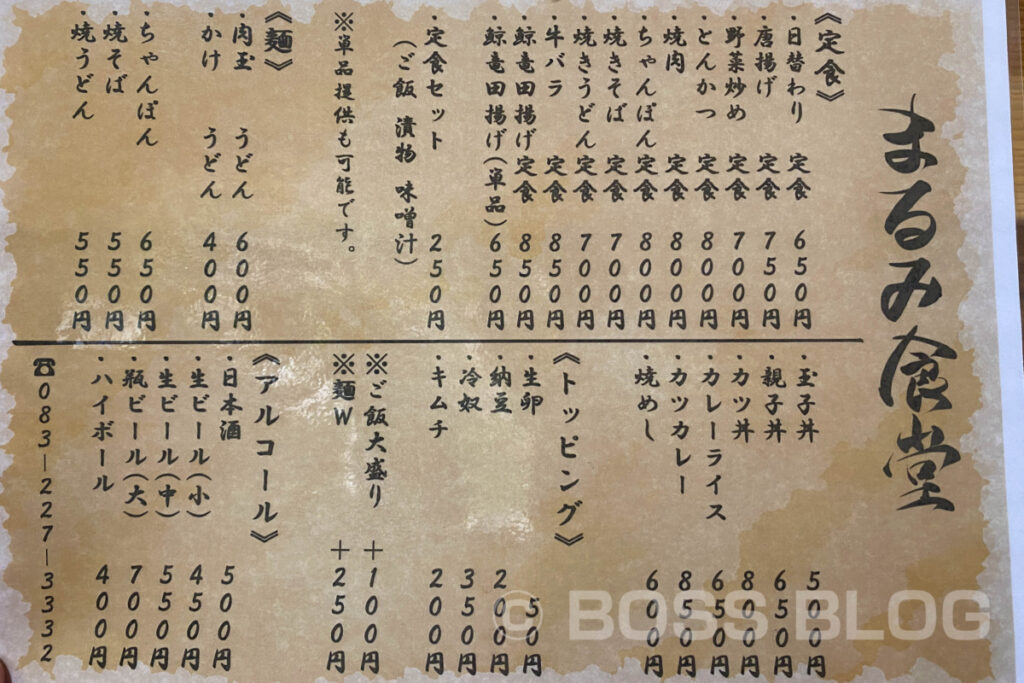 まるみ食堂
《定食》
・日替わり 定食 650円
・唐揚げ 定食 750円
・野菜炒め 定食 700円
・とんかつ 定食 800円
・焼肉 定食 800円
・ちゃんぽん 定食 800円
・焼きそば 定食 700円
・焼きうどん 定食 700円
・牛バラ 定食 850円
・鯨竜田揚げ 定食 850円
・鯨竜田揚げ(単品) 650円
・定食セット 250円
(ご飯 漬物 味噌汁)
※単品提供も可能です。
《麺》
・肉玉 うどん 600円
・かけ うどん 400円
・ちゃんぽん 650円
・焼そば 550円
・焼うどん 550円
・玉子丼 500円
・親子丼 650円
・カツ丼 800円
・カレーライス 650円
・カツカレー 850円
・焼めし 600円
《トッピング》
・生卵 50円
・納豆 200円
・冷奴 350円
・キムチ 200円
※ご飯大盛り +100円
※麺W +250円
《アルコール》
・日本酒 500円
・生ビール(小) 450円
・生ビール(中) 550円
・瓶ビール(大) 700円
・ハイボール 400円
☎083-227-3332
© BOSS BLOG